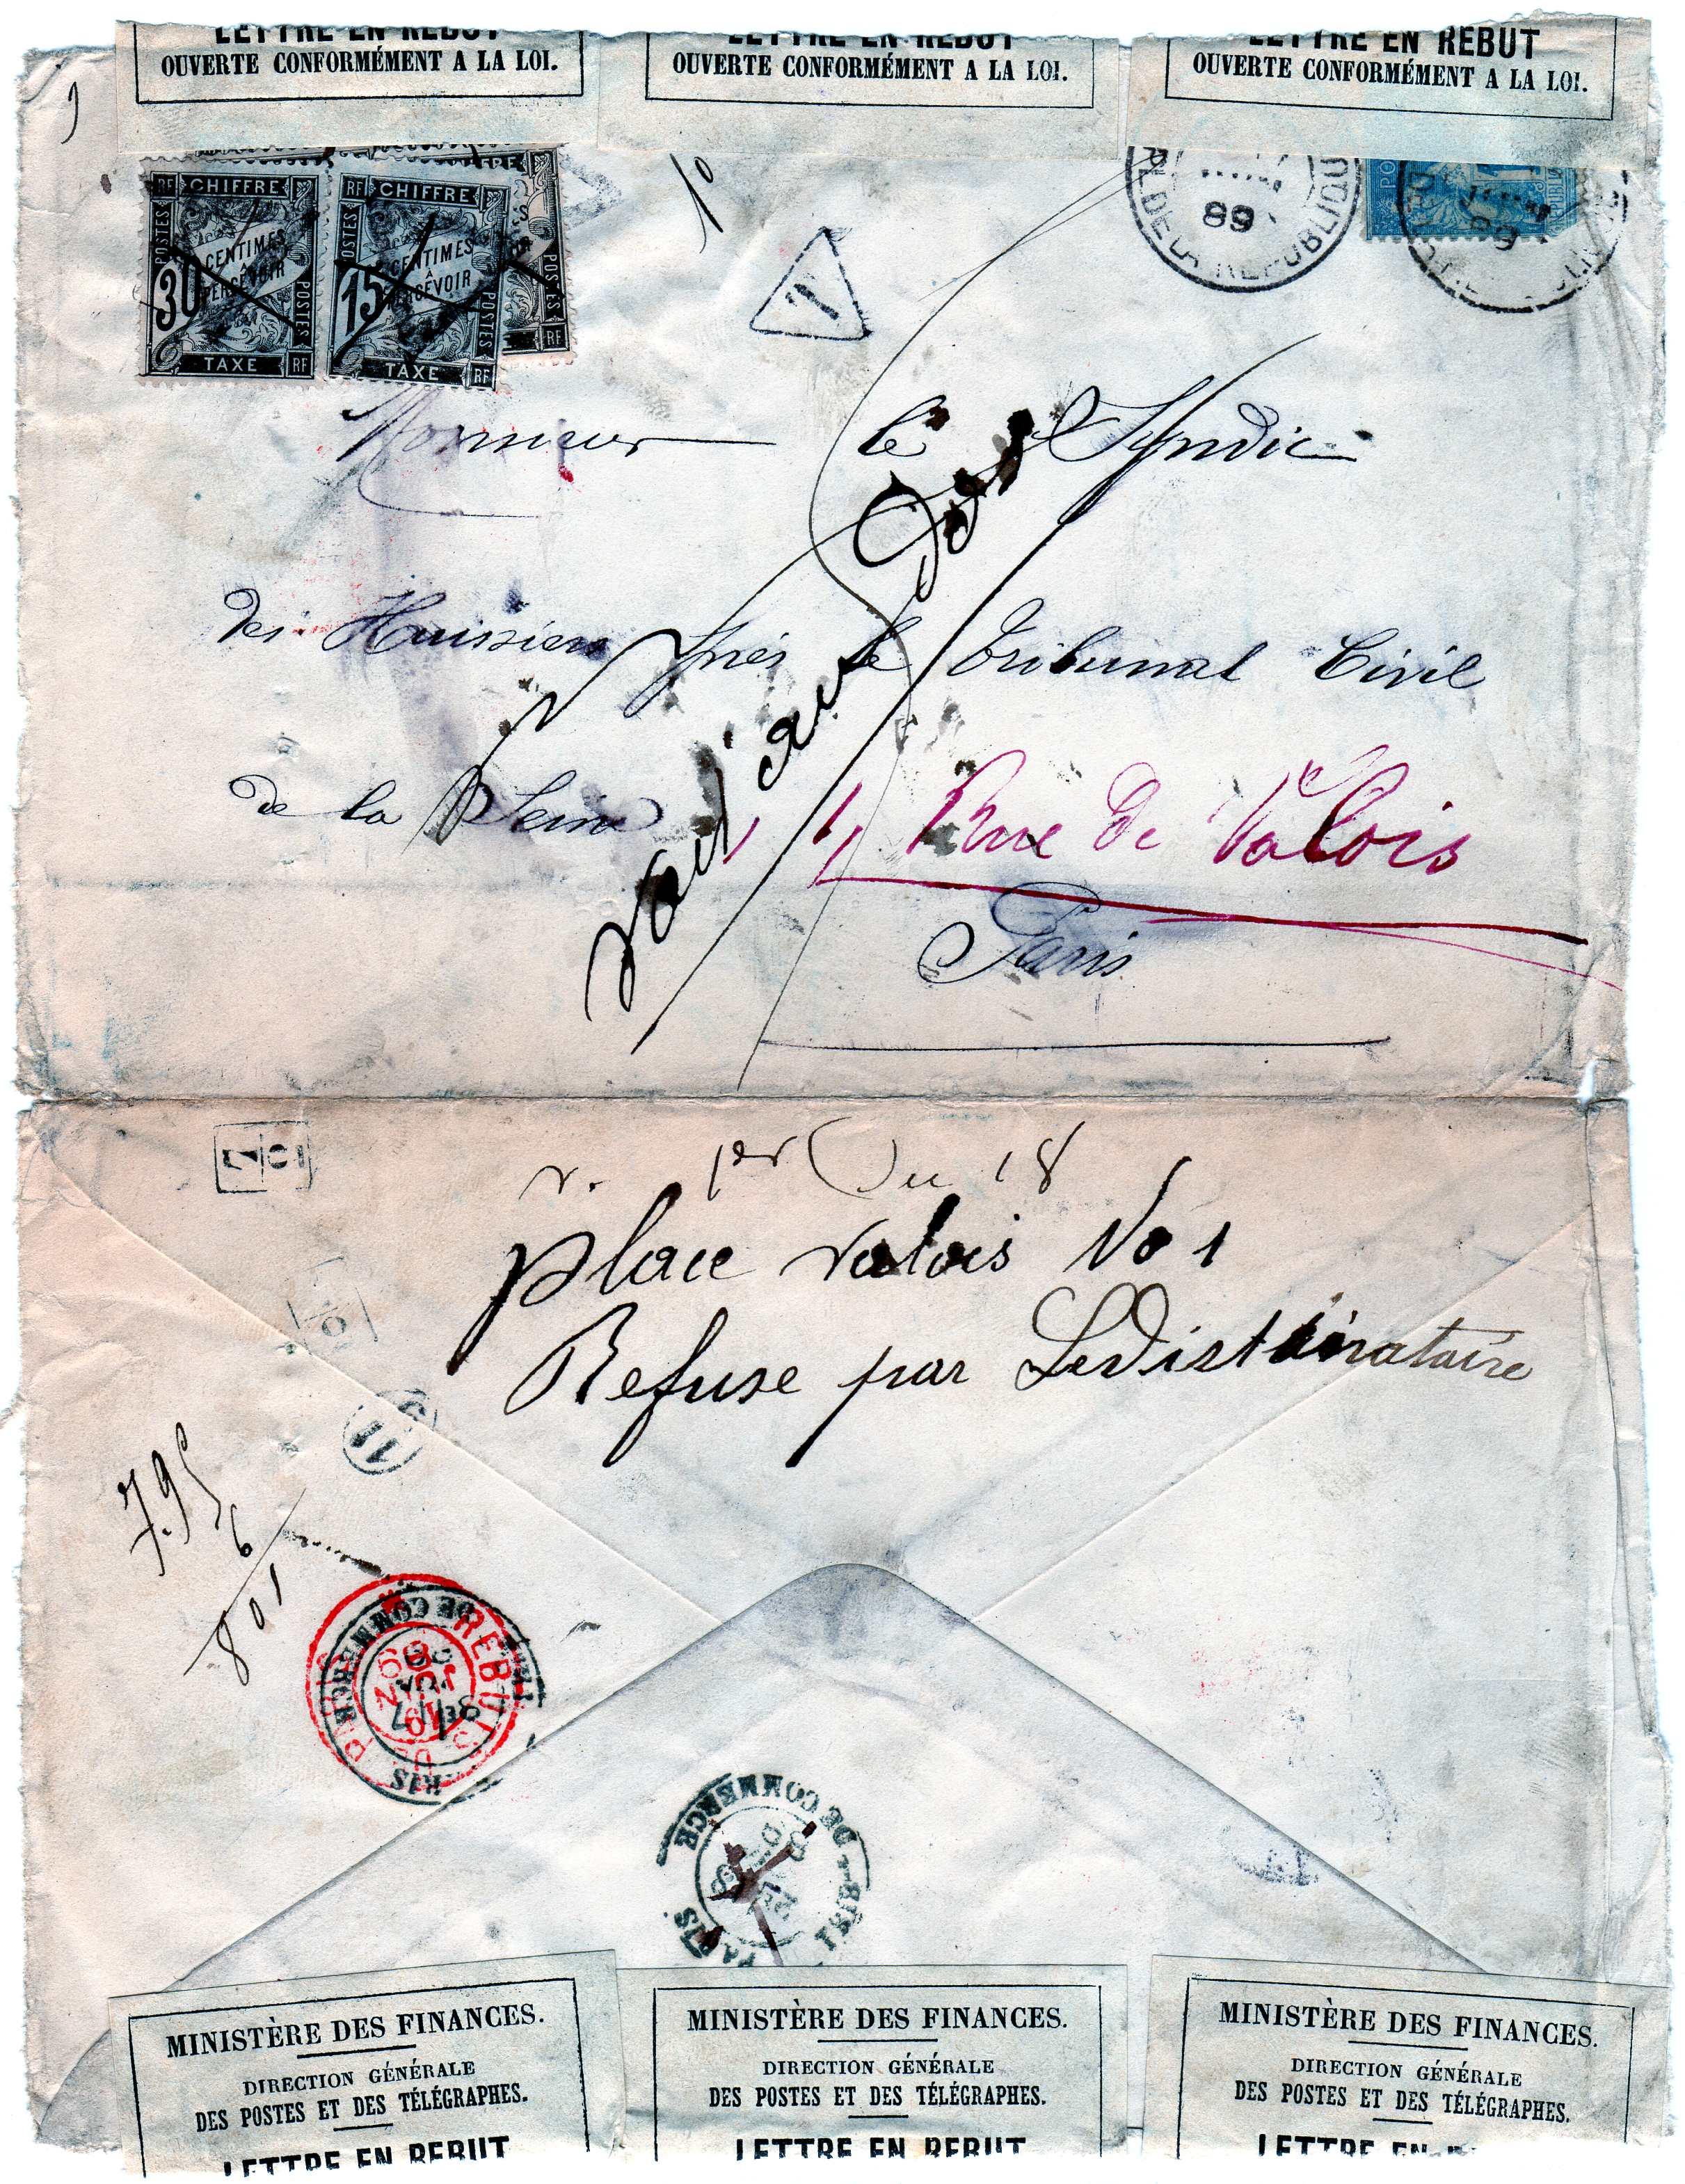 LETTRE EN REBUT
OUVERTE CONFORMÉMENT A LA LOI.
LETTRE EN REBUT
OUVERTE CONFORMÉMENT A LA LOI.
LETTRE EN REBUT
OUVERTE CONFORMÉMENT A LA LOI.
RF CHIFFRE
POSTES
30 CENTIMES
À
PERCEVOIR
POSTES
TAXE RF
RF CHIFFRE
POSTES
15 CENTIMES
À
PERCEVOIR
POSTES
TAXE RF
POSTES
RF
T
89
PL. DE LA REPUBLIQUE
89
Monsieur le Syndic
des Huissiers près le Tribunal Civil
de la Seine
1, Rue de Valois
Paris
voir au Dos
v. 1er Du 18
place valois No 1
Refuse par Le Distinataire
11
795
6
801
REBUTS
JUIN
89
PARIS DE COMMERCE
PARIS DE COMMERCE
MINISTÈRE DES FINANCES.
DIRECTION GÉNÉRALE
DES POSTES ET DES TÉLÉGRAPHES.
LETTRE EN REBUT
MINISTÈRE DES FINANCES.
DIRECTION GÉNÉRALE
DES POSTES ET DES TÉLÉGRAPHES.
LETTRE EN REBUT
MINISTÈRE DES FINANCES.
DIRECTION GÉNÉRALE
DES POSTES ET DES TÉLÉGRAPHES.
LETTRE EN